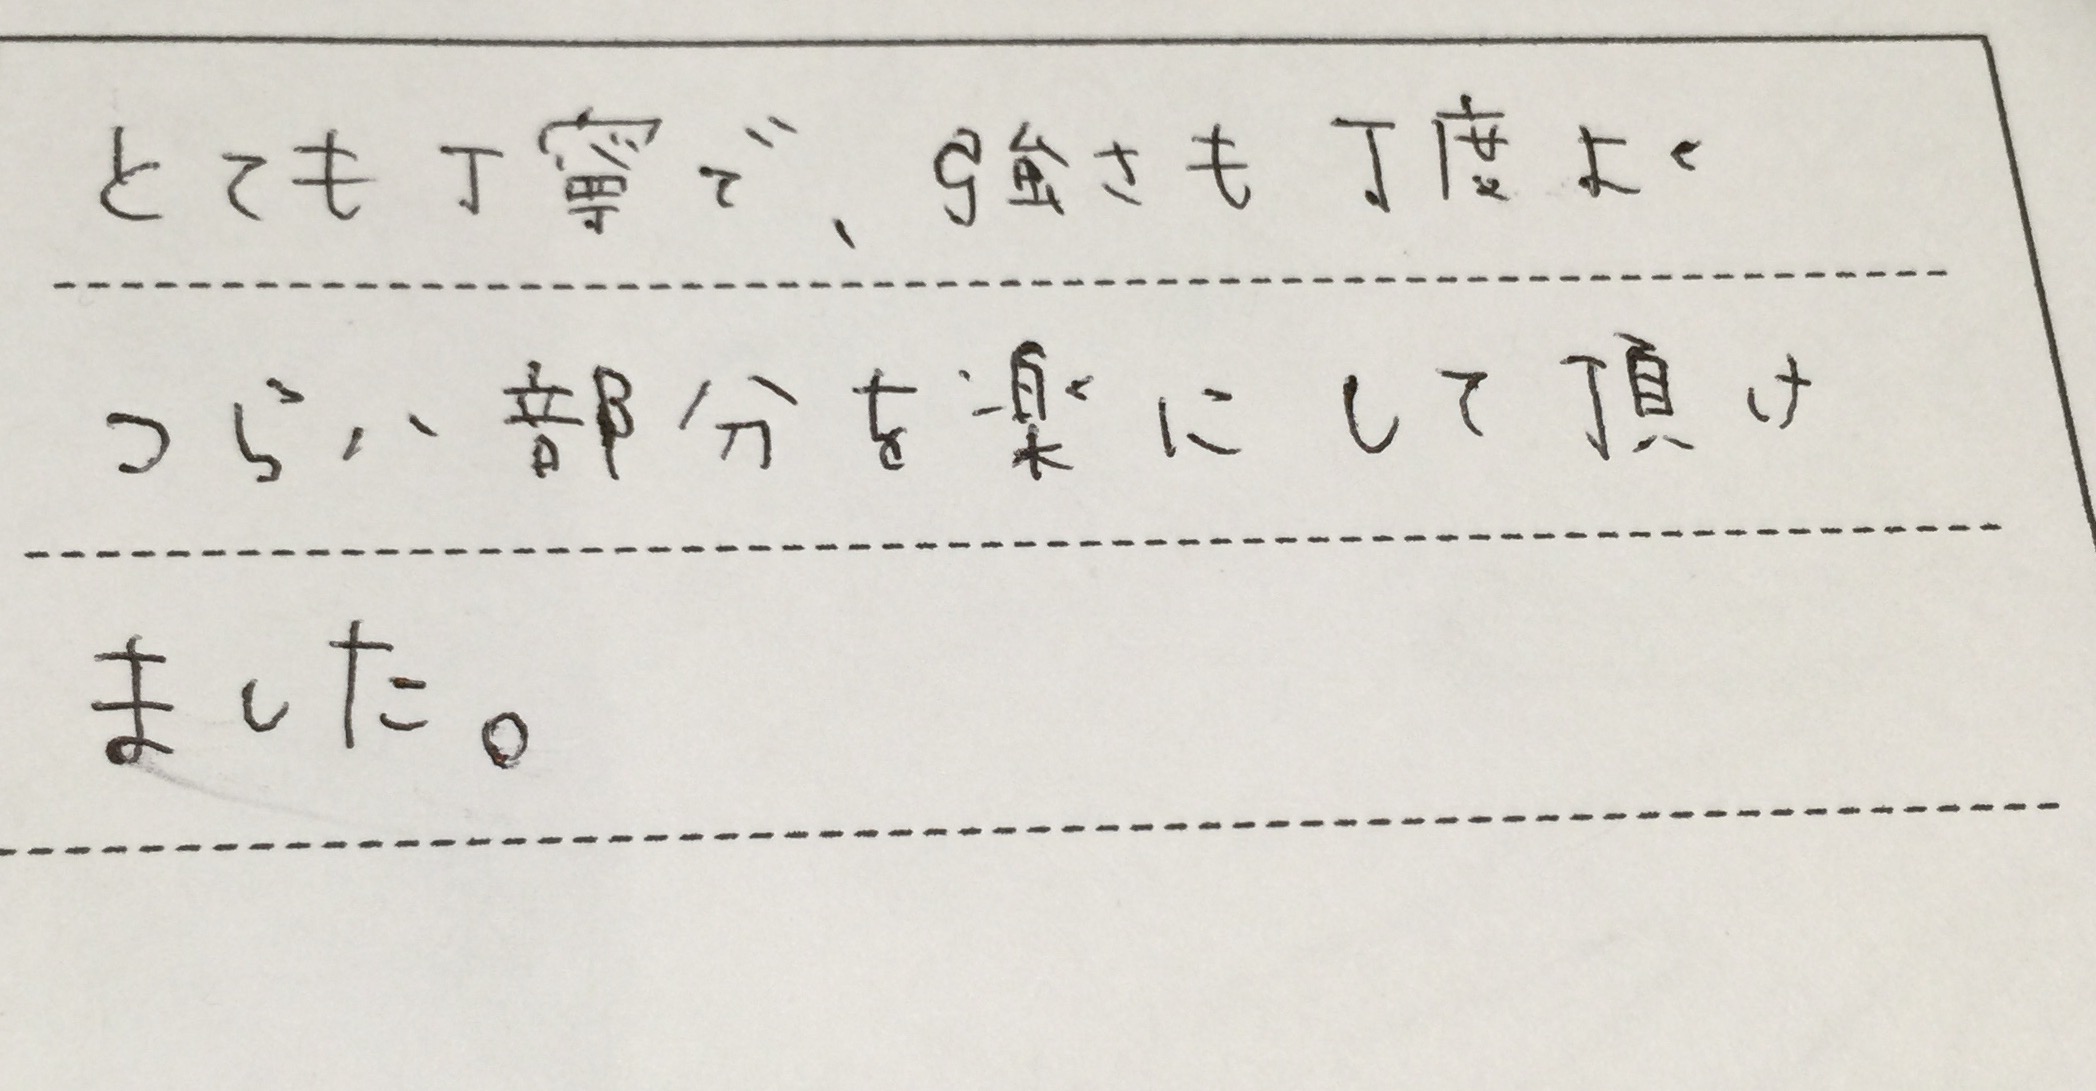 とても丁寧で、強さも丁度よく
つらい部分を楽にして頂け
ました。